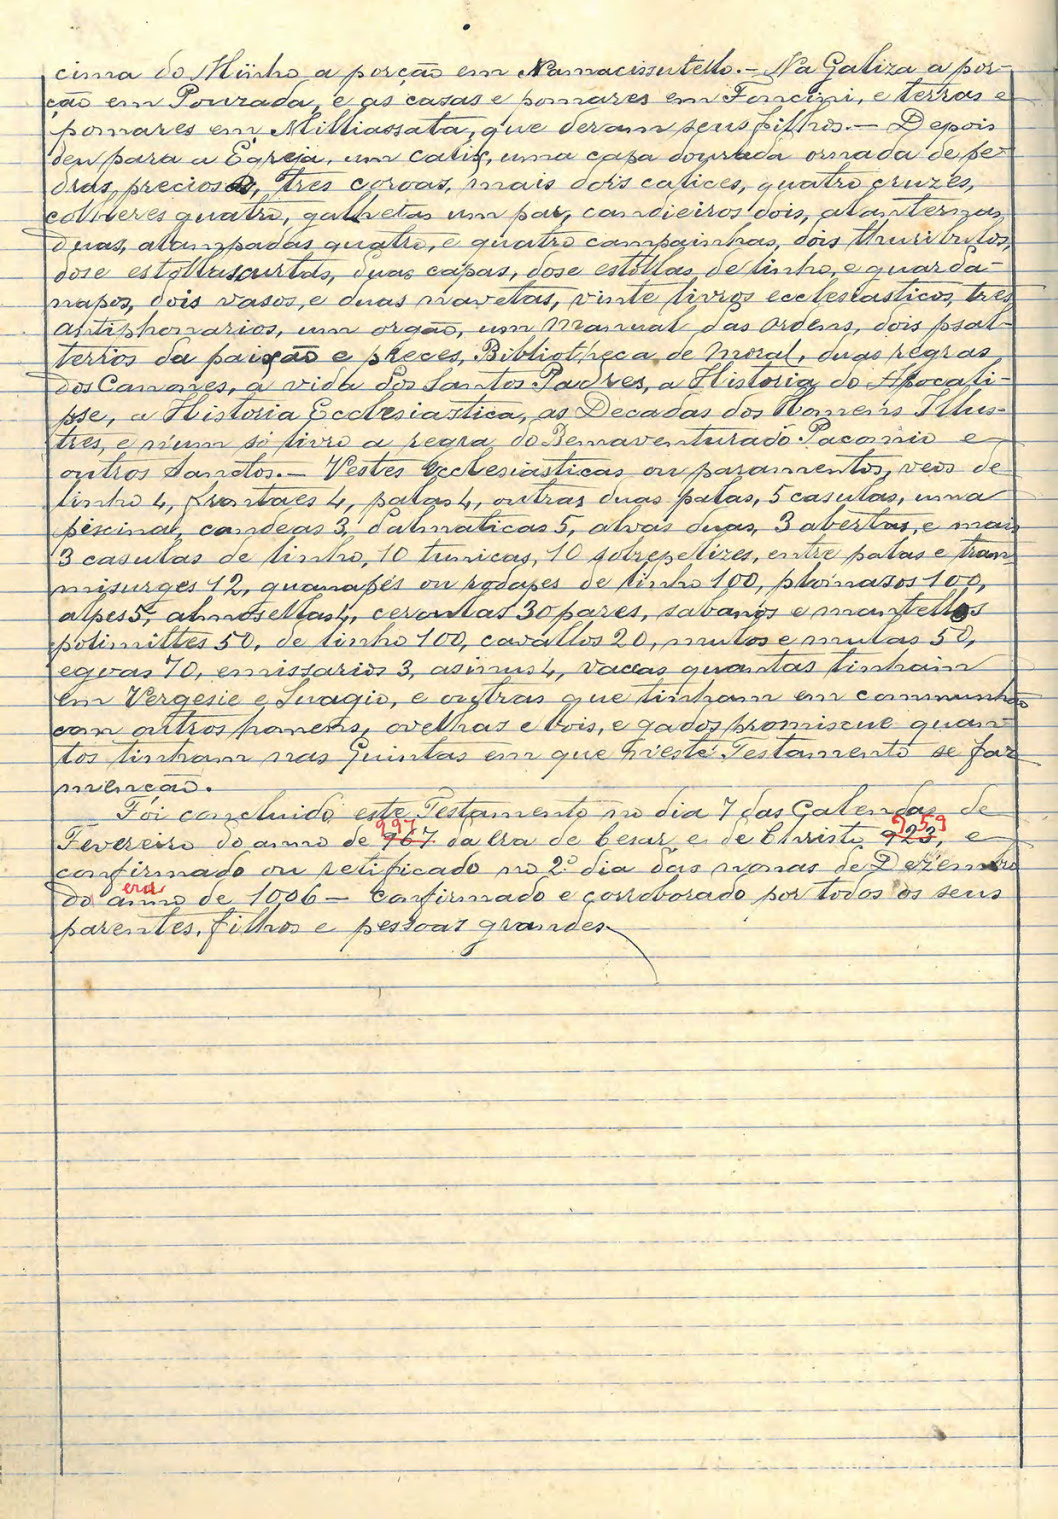 cima do Minho a porção em Namacissutello. — Na Galiza a por-
ção em Pourada, e as casas e pomares em Foncini, e terras e
pomares em Milliassata, que deram seus filhos. — Depois
deu para a Egreja, um calix, uma capa dourada ornada de pe-
dras preciosas, tres coroas, mais dois calices, quatro cruzes,
colheres quatro, galhetas um par, candieiros dois, alanternas
duas, alampadas quatro, e quatro campainhas, dois thuribulos,
dose estollas curtas, duas capas, dose estollas de linho, e guarda-
napos, dois vasos, e duas navetas, vinte livros ecclesiasticos, tres
antiphonarios, um orgão, um Manual das Ordens, dois psal-
terios da paixão e preces, Bibliotheca de Moral, duas regras
dos Canones, a vida dos Santos Padres, a Historia do Apocali-
pse, a Historia Ecclesiastica, as Decadas dos Homens Illus-
tres, e n'um só livro a regra do Bemaventurado Pacomio e
outros Sanctos. — Vestes Ecclesiasticas ou paramentos, veos de
linho 4, frontaes 4, palas 4, outras duas palas, 5 casulas, uma
piscinal, candeas 3, dalmaticas 5, alvas duas, 3 abertas, e mais
3 casulas de linho, 10 tunicas, 10 sobrepelizes, entre palas e tran
misurges 12, guanapés ou rodapes de linho 100, plumasos 100,
alpes 5, almosellas 4, ceroulas 30 pares, sabanos e mantellos
polimittes 50, de linho 100, cavallos 20, mulos e mulas 50,
egoas 70, emissarios 3, asinus 4, vaccas quantas tinham
em Vergesie e Suagio, e outras que tinham em communhão
com outros homens, ovelhas e bois, e gados promiscue quan-
tos tinham nas Quintas em que n'este Testamento se faz
menção.
Foi concluido este Testamento no dia 7 das Calendas de
997 959
Fevereiro do anno de 967 da era de Cesar, e de Christo 923, e
confirmado ou retificado no 2.º dia das nonas de Dezembro
era
do anno de 1006 — confirmado e corroborado por todos os seus
parentes, filhos e pessoas grandes